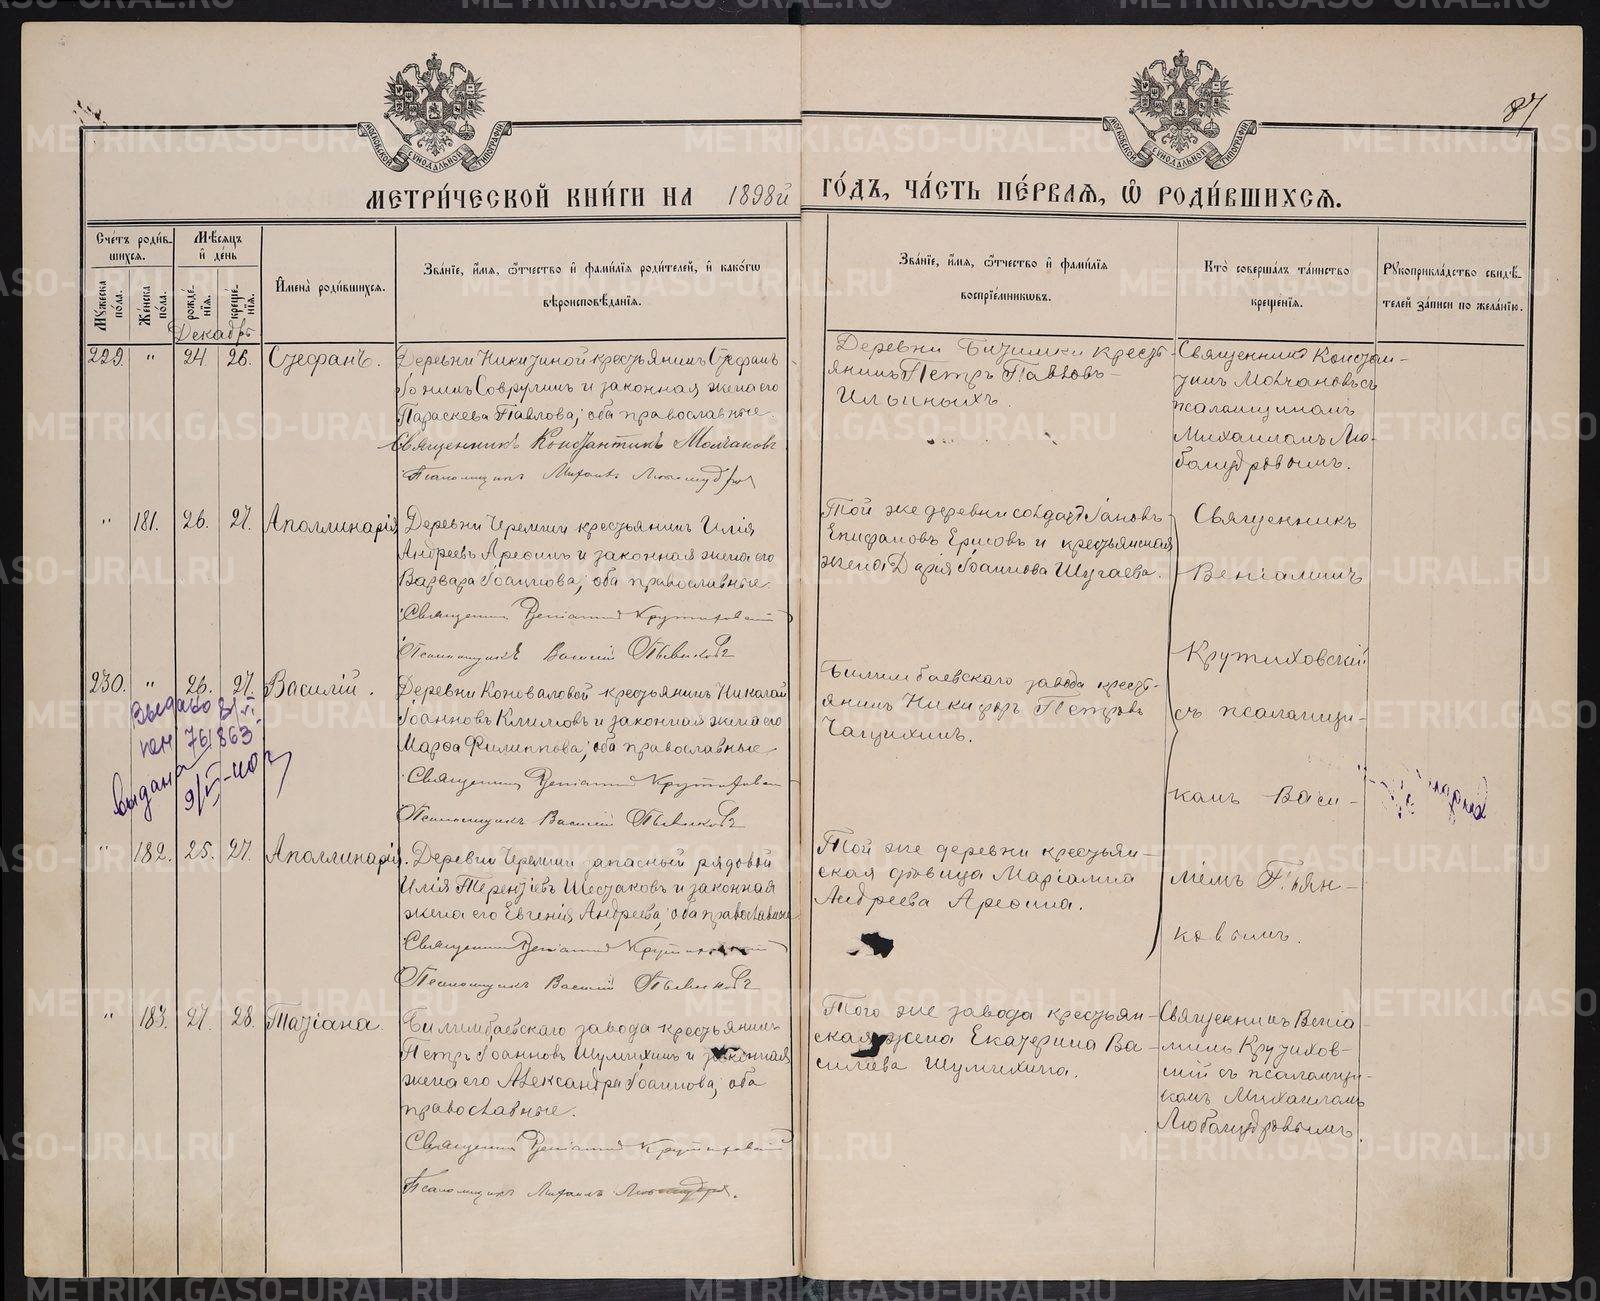 87
МОСКОВСКОЙ СѴНОДАЛЬНОЙ ТИПОГРАФІИ
МОСКОВСКОЙ СѴНОДАЛЬНОЙ ТИПОГРАФІИ
МЕТРИ́ЧЕСКОЙ КНИ́ГИ НА 1898й ГО́ДЪ, ЧА́СТЬ ПЕ́РВАѦ, Ѽ РОДИ́ВШИХСѦ.
Сче́тъ роди́в-
шихсѧ.
Мѣ́сѧцъ
и҆ де́нь
Мꙋ́жеска по́ла.
Же́нска по́ла.
рожде́нїѧ.
креще́нїѧ.
И҆мена̀ роди́вшихсѧ.
Зва́нїе, и҆́мѧ, ѻ҆́тчество и҆ фами́лїѧ роди́телей, и҆ како́гѡ
вѣроисповѣ́данїѧ.
Зва́нїе, и҆́мѧ, ѻ҆́тчество и҆ фами́лїѧ
воспрїе́мникѡвъ.
Кто̀ соверша́лъ та́инство
креще́нїѧ.
Рꙋкоприкла́дство свидѣ́-
телей за́писи по жела́нїю.
Декабрь
229. " 24 26. Стефанъ.
Деревни Никитиной крестьянинъ Стефанъ
Іонинъ Соврулинъ и законная жена его
Параскева Павлова; оба православные.
Священникъ Константинъ Молчановъ
Псаломщикъ Михаилъ Любомудровъ
Деревни Битимки кресть-
янинъ Петръ Павловъ
Ильиныхъ.
Священникъ Констан-
тинъ Молчановъ съ
псаломщикомъ
Михаиломъ Лю-
бомудровымъ.
" 181. 26. 27. Аполлинарія
Деревни Черемши крестьянинъ Илія
Андреевъ Арефинъ и законная жена его
Варвара Іоаннова; оба православные.
Священникъ Веніаминъ Крутиховскій
Псаломщикъ Василій Пьянковъ
Той же деревни солдатъ Іаковъ
Епифановъ Ершовъ и крестьянская
жена Дарія Іоаннова Шугаева.
Священникъ
Веніаминъ
Крутиховскій
съ псаломщи-
комъ Васи-
ліемъ Пьян-
ковымъ.
230. " 26. 27. Василій.
Выдано
761863
Выдана
9/VI-40г
Деревни Коноваловой крестьянинъ Николай
Іоанновъ Климовъ и законная жена его
Марѳа Филиппова; оба православные
Священникъ Веніаминъ Крутиховскій
Псаломщикъ Василій Пьянковъ
Билимбаевскаго завода кресть-
янинъ Никифоръ Петровъ
Чащихинъ.
" 182. 25. 27. Аполлинарія.
Деревни Черемши запасный рядовой
Илія Терентіевъ Шестаковъ и законная
жена его Евгенія Андреева; оба православные
Священникъ Веніаминъ Крутиховскій
Псаломщикъ Василій Пьянковъ
Той же деревни крестьян-
ская дѣвица Маріамна
Андреева Арефина.
" 183. 27. 28. Татіана.
Билимбаевскаго завода крестьянинъ
Петръ Іоанновъ Шумихинъ и законная
жена его Александра Іоаннова; оба
православные.
Священникъ Веніаминъ Крутиховскій
Псаломщикъ Михаилъ Любомудровъ.
Того же завода крестьян-
ская жена Екатерина Ва-
силіева Шумихина.
Священникъ Веніа-
минъ Крутихов-
скій съ псаломщи-
комъ Михаиломъ
Любомудровымъ.
METRIKI.GASO-URAL.RU